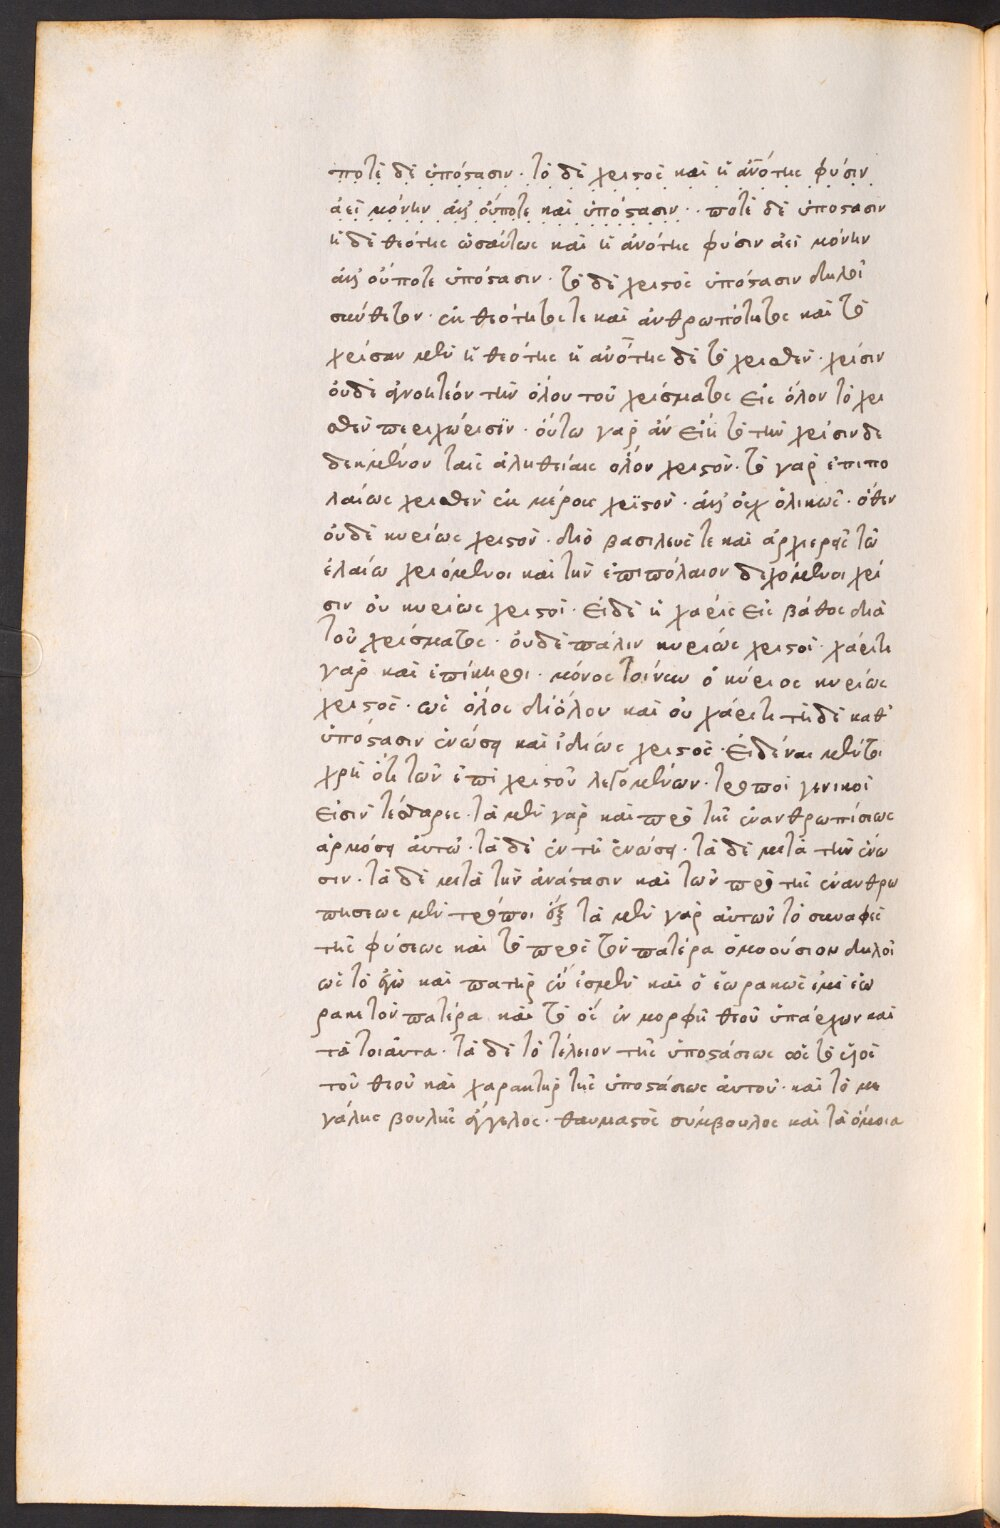 ποτὲ δὲ ὑπόστασιν· τὸ δὲ χριστὸς καὶ ἡ ἀνότης φύσιν
ἀεὶ μόνην ἀλλ' οὔποτε καὶ ὑπόστασιν· ποτὲ δὲ ὑπόστασιν
ἡ δὲ θεότης ὡσαύτως καὶ ἡ ἀνότης φύσιν ἀεὶ μόνην
ἀλλ' οὔποτε ὑπόστασιν· τὸ δὲ χριστὸς ὑπόστασιν δηλοῖ
σύνθετον· ἐκ θεότητος τε καὶ ἀνθρωπότητος καὶ τὸ
χρίσαν μὲν ἡ θεότης ἡ ἀνότης δὲ τὸ χρισθὲν· χρίσιν
οὐδὲ ἀγνοητέον τὴν ὅλου τοῦ χρίσματος εἰς ὅλον τὸ χρι
σθὲν περιχώρισϊν· οὕτω γὰρ ἂν εἴη τὸ τὴν χρίσιν δε
δεγμένον ταῖς ἀληθείαις ὅλον χριστὸν· τὸ γὰρ ἐπιπο
λαίως χρισθὲν ἐκ μέρους χρϊστὸν· ἀλλ' οὐχ ὁλικῶς· ὅθεν
οὐδὲ κυρίως χριστὸν· διὸ βασιλεῖς τε καὶ ἀρχιερεῖς τῶ
ἐλαίω χριόμενοι καὶ τὴν ἐπιπόλαιον δεχόμενοι χρί
σιν οὐ κυρίως χριστοὶ· εἰ δὲ ἡ χάρις εἰς βάθος διὰ
τοῦ χρίσματος· οὐδὲ πάλιν κυρίως χριστοὶ· χάριτι
γὰρ καὶ ἐπίκηροι· μόνος τοίνυν ὁ κύριος κυρίως
χριστὸς· ὡς ὅλος διόλου καὶ οὐ χάριτι τῆ δὲ καθ'
ὑπόστασιν ἑνώσει καὶ ἰδίως χριστὸς· Εἰδέναι μέντοι
χρὴ ὅτι τῶν ἐπὶ χριστοῦ λεγομένων· τρόποι γενικοὶ
εἰσιν τέσσαρες· τὰ μὲν γὰρ καὶ πρὸ τῆς ἐνανθρωπίσεως
ἁρμόσει αὐτῶ· τὰ δὲ ἐν τῆ ἑνώσει· τὰ δὲ μετὰ τὴν ἕνω
σιν· τὰ δὲ μετὰ τὴν ἀνάστασιν καὶ τῶν πρὸ τῆς ἐνανθρω
πησεως μὲν τρόποι ἕξ τὰ μὲν γὰρ αὐτῶν τὸ συναφὲς
τῆς φύσεως καὶ τὸ πρὸς τὸν πατέρα ὁμοούσιον δηλοῖ
ὡς τὸ ἐγὼ καὶ πατὴρ ἕν ἐσμὲν καὶ ὁ ἑωρακὼς ἐμὲ ἑώ
ρακε τὸν πατέρα καὶ τὸ ὃς ἐν μορφῆ θεοῦ ὑπάρχων καὶ
τὰ τοιαῦτα· τὰ δὲ τὸ τέλειον τῆς ὑποστάσεως ὡς τὸ υἱὸς
τοῦ θεοῦ καὶ χαρακτὴρ τῆς ὑποστάσεως αὐτοῦ· καὶ τὸ με
γάλης βουλῆς ἄγγελος· θαυμαστὸς σύμβουλος καὶ τὰ ὅμοια